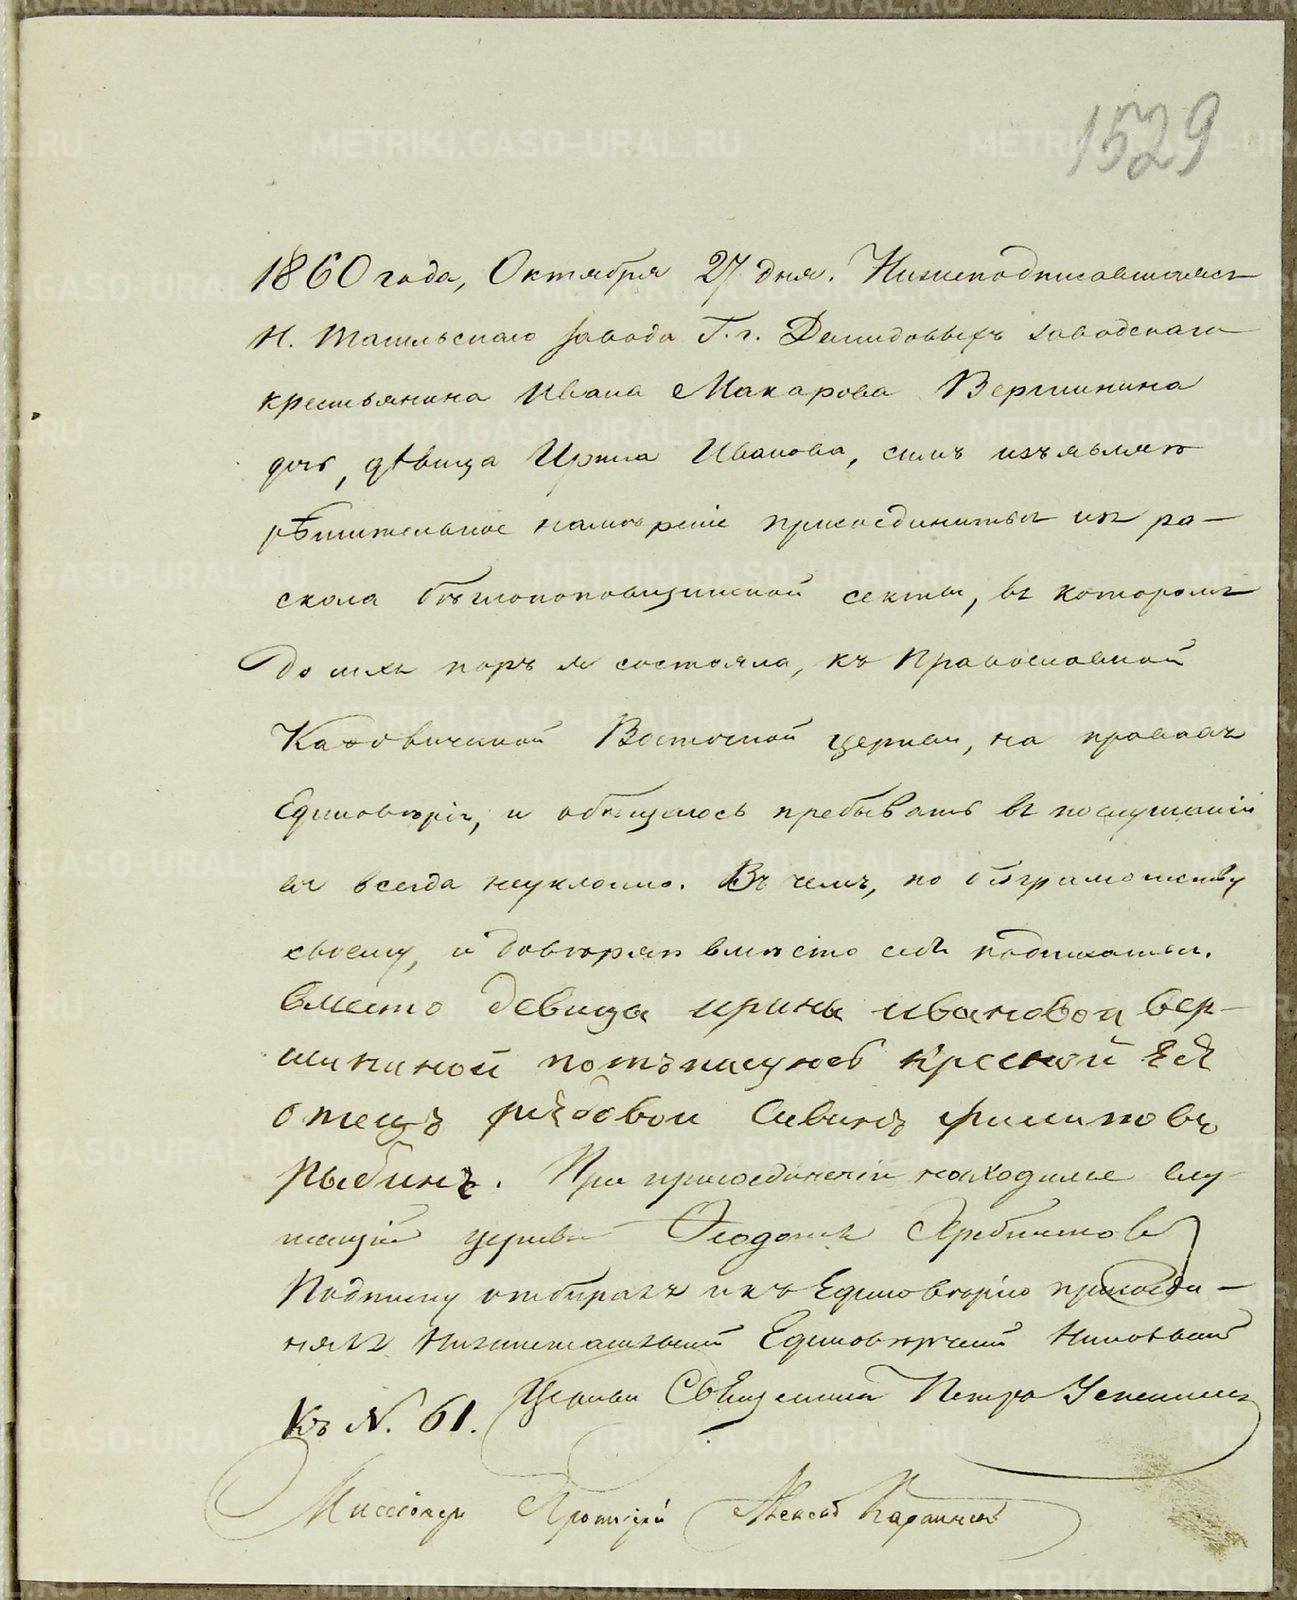 1529
1860 года, Октября 27 дня. Нижеподписавшаяся
Н. Тагильскаго завода Г.г. Демидовыхъ заводскаго
крестьянина Ивана Макарова Вершинина
дочь, дѣвица Ирина Иванова, симъ изъявляю
рѣшительное намѣреніе присоединиться изъ ра-
скола бѣглопоповщинской секты, въ которомъ
до сихъ поръ я состояла, къ Православной
Каѳолической Восточной церкви, на правилахъ
Единовѣрія, и обѣщаюсь пребывать въ послушаніи
ея всегда неуклонно. Въ чемъ, по безграмотству
своему, и довѣряю вмѣсто себя подписаться.
вместо девица ирины ивановои вер-
шининой потъписуюсь кресной ѣя
отецъ рѣдовои Савинъ филиповъ
рыбинъ. При присоединеніи находился слу-
жащій церкви Ѳеодотъ
Подписку отбиралъ и къ Единовѣрію присоеди-
нялъ Нижнетагильской Единовѣрческой Николаевской
Церкви Священникъ Петръ
Къ N. 61.
METRIKI.GASO-URAL.RU
Миссіонеръ Протоіерей